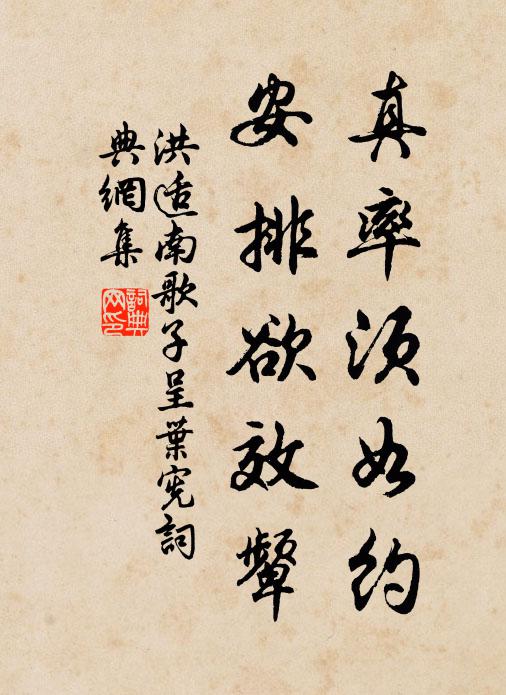 真率須如約
安排欲效顰
洪适南歌子呈葉憲詞
典網集
詞典網印